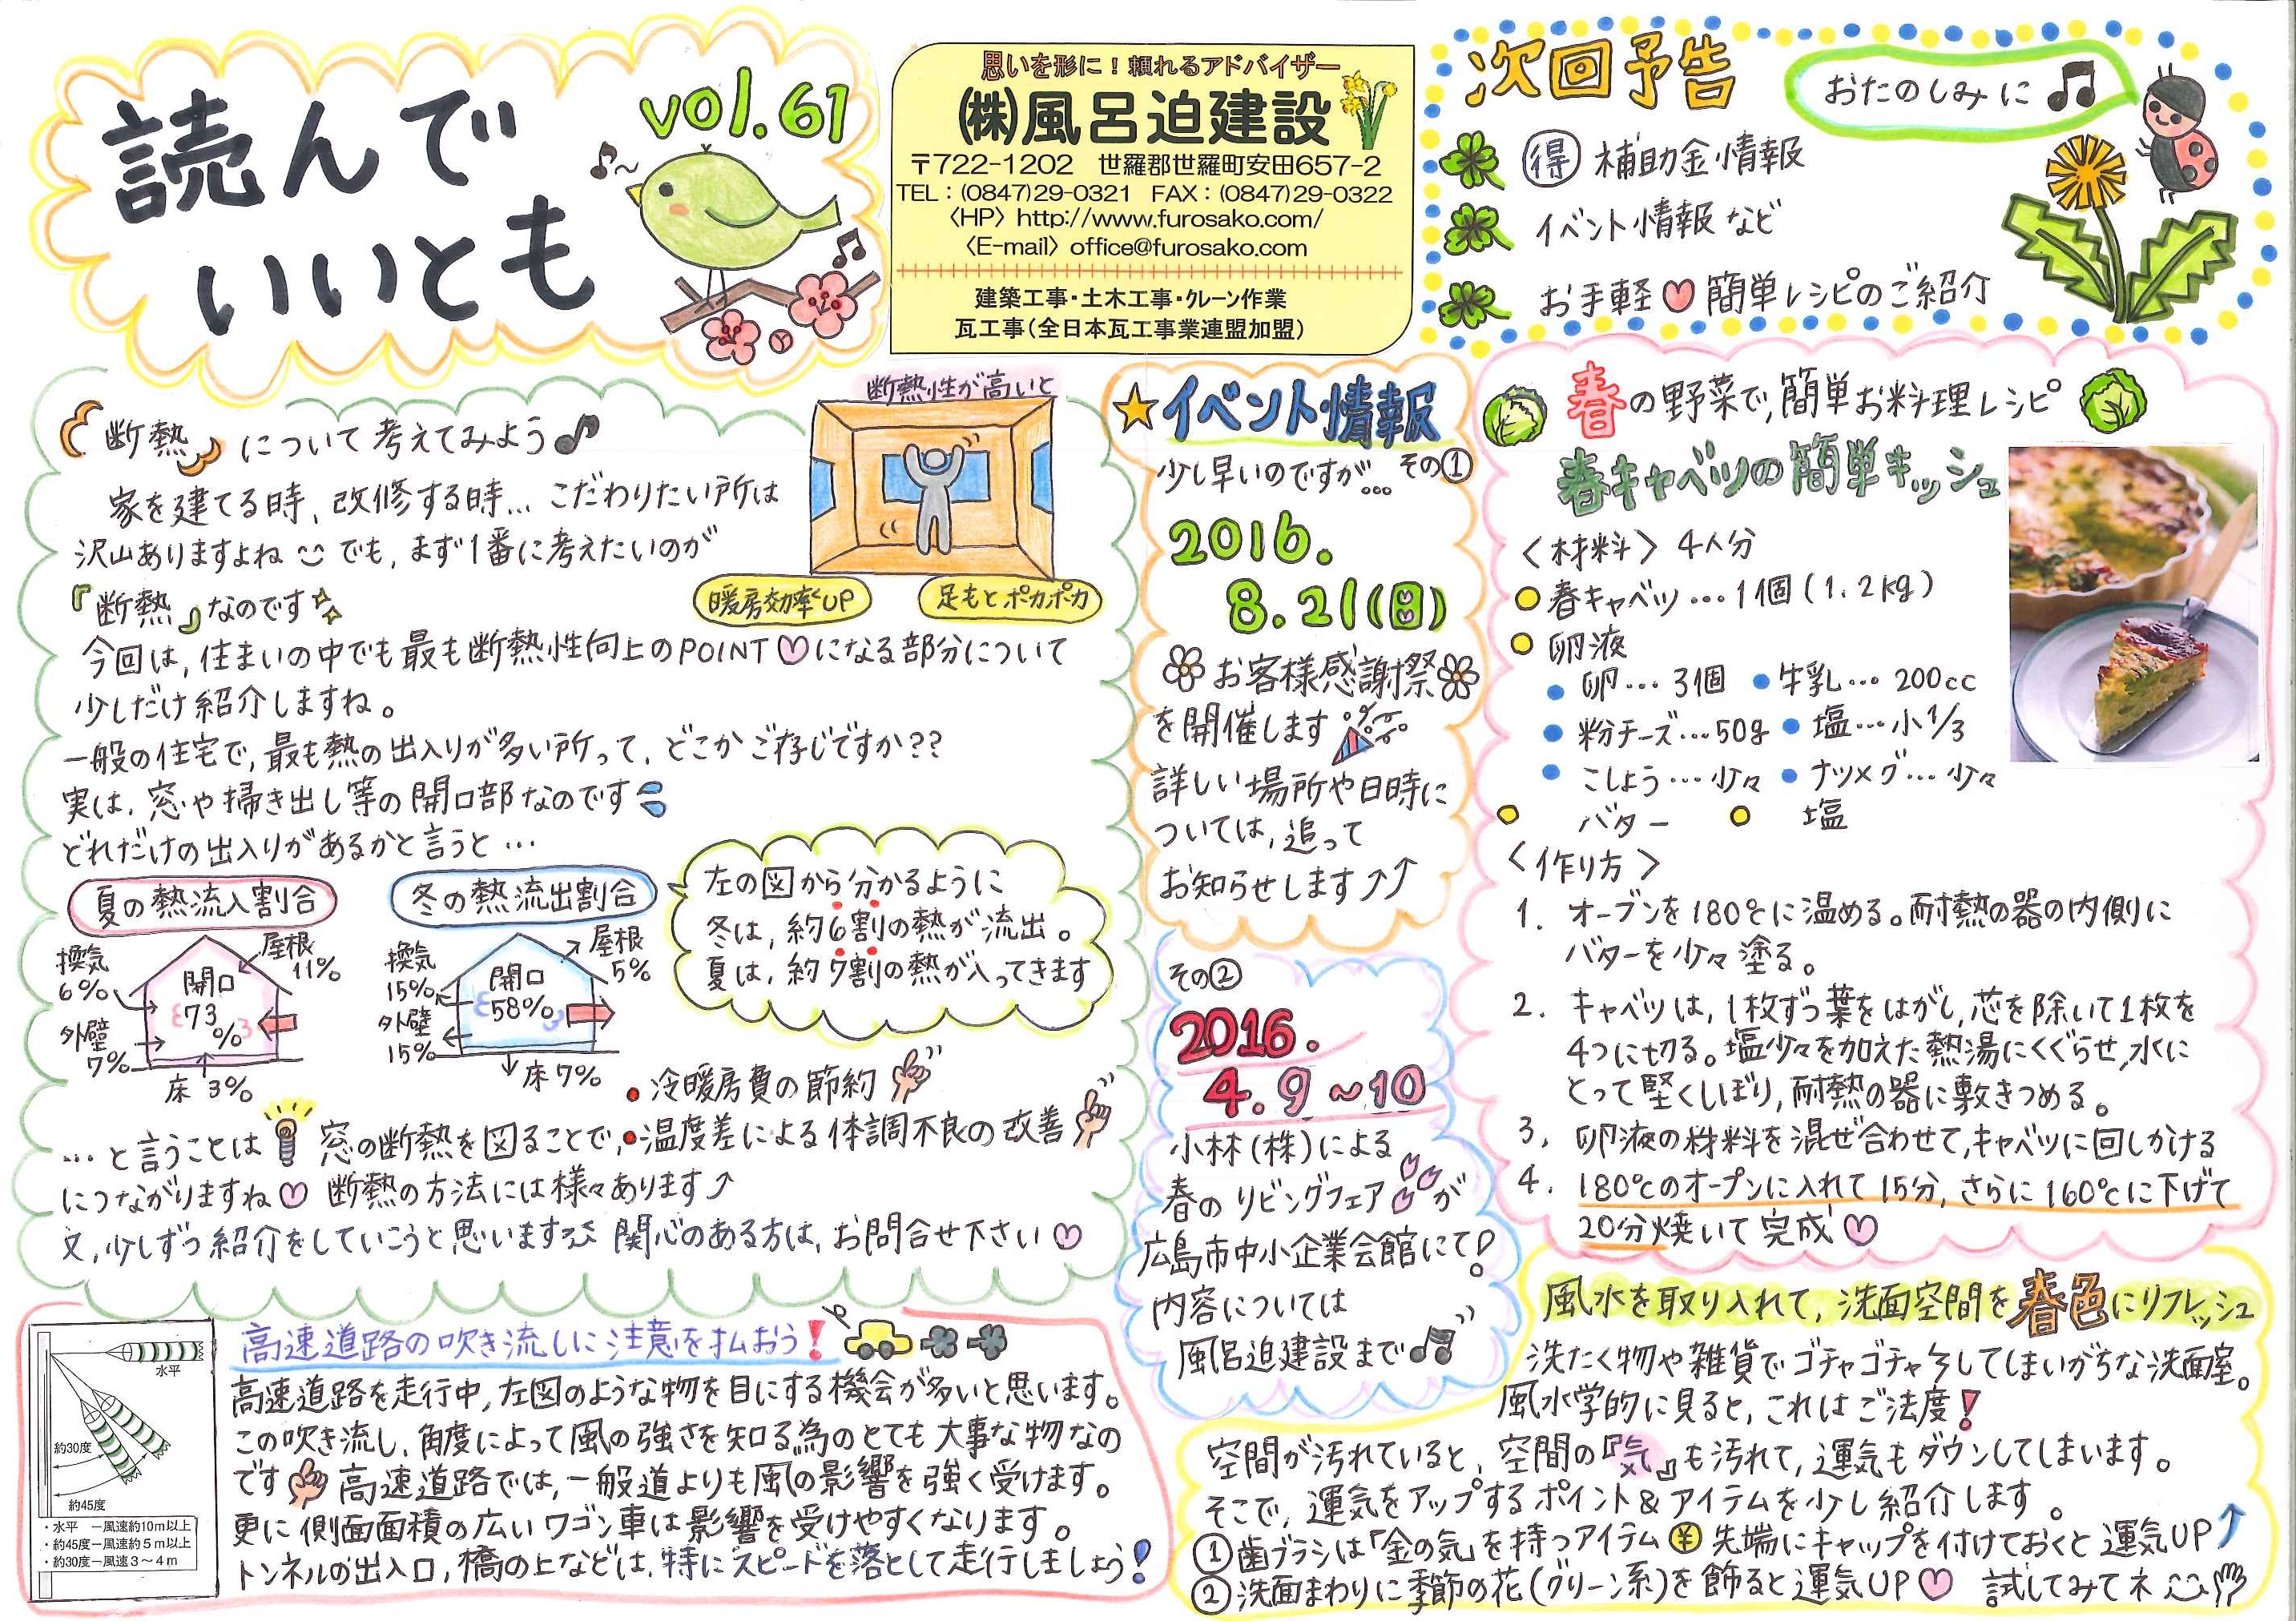 読んで
いいとも
vol.61
思いを形に！頼れるアドバイザー
㈱風呂迫建設
〒722-1202 世羅郡世羅町安田657-2
TEL：(0847)29-0321 FAX：(0847)29-0322
〈HP〉http://www.furosako.com/
〈E-mail〉office@furosako.com
建築工事・土木工事・クレーン作業
瓦工事(全日本瓦工事業連盟加盟)
次回予告
おたのしみに♫
㊝ 補助金情報
イベント情報など
お手軽♡簡単レシピのご紹介
『断熱』について考えてみよう♪
家を建てる時、改修する時…こだわりたい所は
沢山ありますよね でも、まず1番に考えたいのが
『断熱』なのです
今回は、住まいの中でも最も断熱性向上のPOINT♡になる部分について
少しだけ紹介しますね。
一般の住宅で、最も熱の出入りが多い所って、どこかご存じですか??
実は、窓や掃き出し等の開口部なのです
どれだけの出入りがあるかと言うと…
断熱性が高いと
暖房効率UP
足もとポカポカ
夏の熱流入割合
換気
6%
屋根
11%
開口
73%
外壁
7%
床 3%
冬の熱流出割合
換気
15%
屋根
5%
開口
58%
外壁
15%
床 7%
左の図から分かるように
冬は、約6割の熱が流出。
夏は、約7割の熱が入ってきます
・冷暖房費の節約
…と言うことは 窓の断熱を図ることで、・温度差による体調不良の改善
につながりますね♡ 断熱の方法には様々あります↗
又、少しずつ紹介をしていこうと思います 関心のある方は、お問合せ下さい♡
★イベント情報
少し早いのですが… その①
2016.
8.21(日)
お客様感謝祭
を開催します
詳しい場所や日時に
ついては、追って
お知らせします↗↑
その②
2016.
4.9~10
小林(株)による
春のリビングフェアが
広島市中小企業会館にて!
内容については
風呂迫建設まで♫
春の野菜で、簡単お料理レシピ
春キャベツの簡単キッシュ
〈材料〉4人分
春キャベツ…1個(1.2kg)
卵液
卵…3個 牛乳…200cc
粉チーズ…50g 塩…小1/3
こしょう…少々 ナツメグ…少々
バター 塩
〈作り方〉
1. オーブンを180℃に温める。耐熱の器の内側に
バターを少々塗る。
2. キャベツは、1枚ずつ葉をはがし、芯を除いて1枚を
4つに切る。塩少々を加えた熱湯にくぐらせ、水に
とって堅くしぼり、耐熱の器に敷きつめる。
3. 卵液の材料を混ぜ合わせて、キャベツに回しかける
4. 180℃のオーブンに入れて15分、さらに160℃に下げて
20分焼いて完成♡
水平
約30度
約45度
・水平 ー風速約10m以上
・約45度ー風速約5m以上
・約30度ー風速3〜4m
高速道路の吹き流しに注意を払おう!
高速道路を走行中、左図のような物を目にする機会が多いと思います。
この吹き流し、角度によって風の強さを知る為のとても大事な物なの
です 高速道路では、一般道よりも風の影響を強く受けます。
更に側面面積の広いワゴン車は影響を受けやすくなります。
トンネルの出入口、橋の上などは、特にスピードを落として走行しましょう!
風水を取り入れて、洗面空間を春色にリフレッシュ
洗たく物や雑貨でゴチャゴチャしてしまいがちな洗面室。
風水学的に見ると、これはご法度!
空間が汚れていると、空間の『気』も汚れて、運気もダウンしてしまいます。
そこで、運気をアップするポイント&アイテムを少し紹介します。
①歯ブラシは「金の気」を持つアイテム¥ 先端にキャップを付けておくと運気UP↑
②洗面まわりに季節の花(グリーン系)を飾ると運気UP♡ 試してみてネ